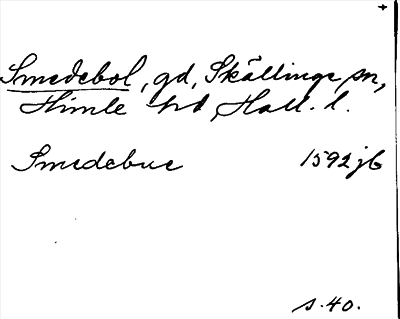 +
Smedebol, gd, Skällinge sn,
Himle hd, Hall. l.
Smedebue 1592 jb
s. 40.